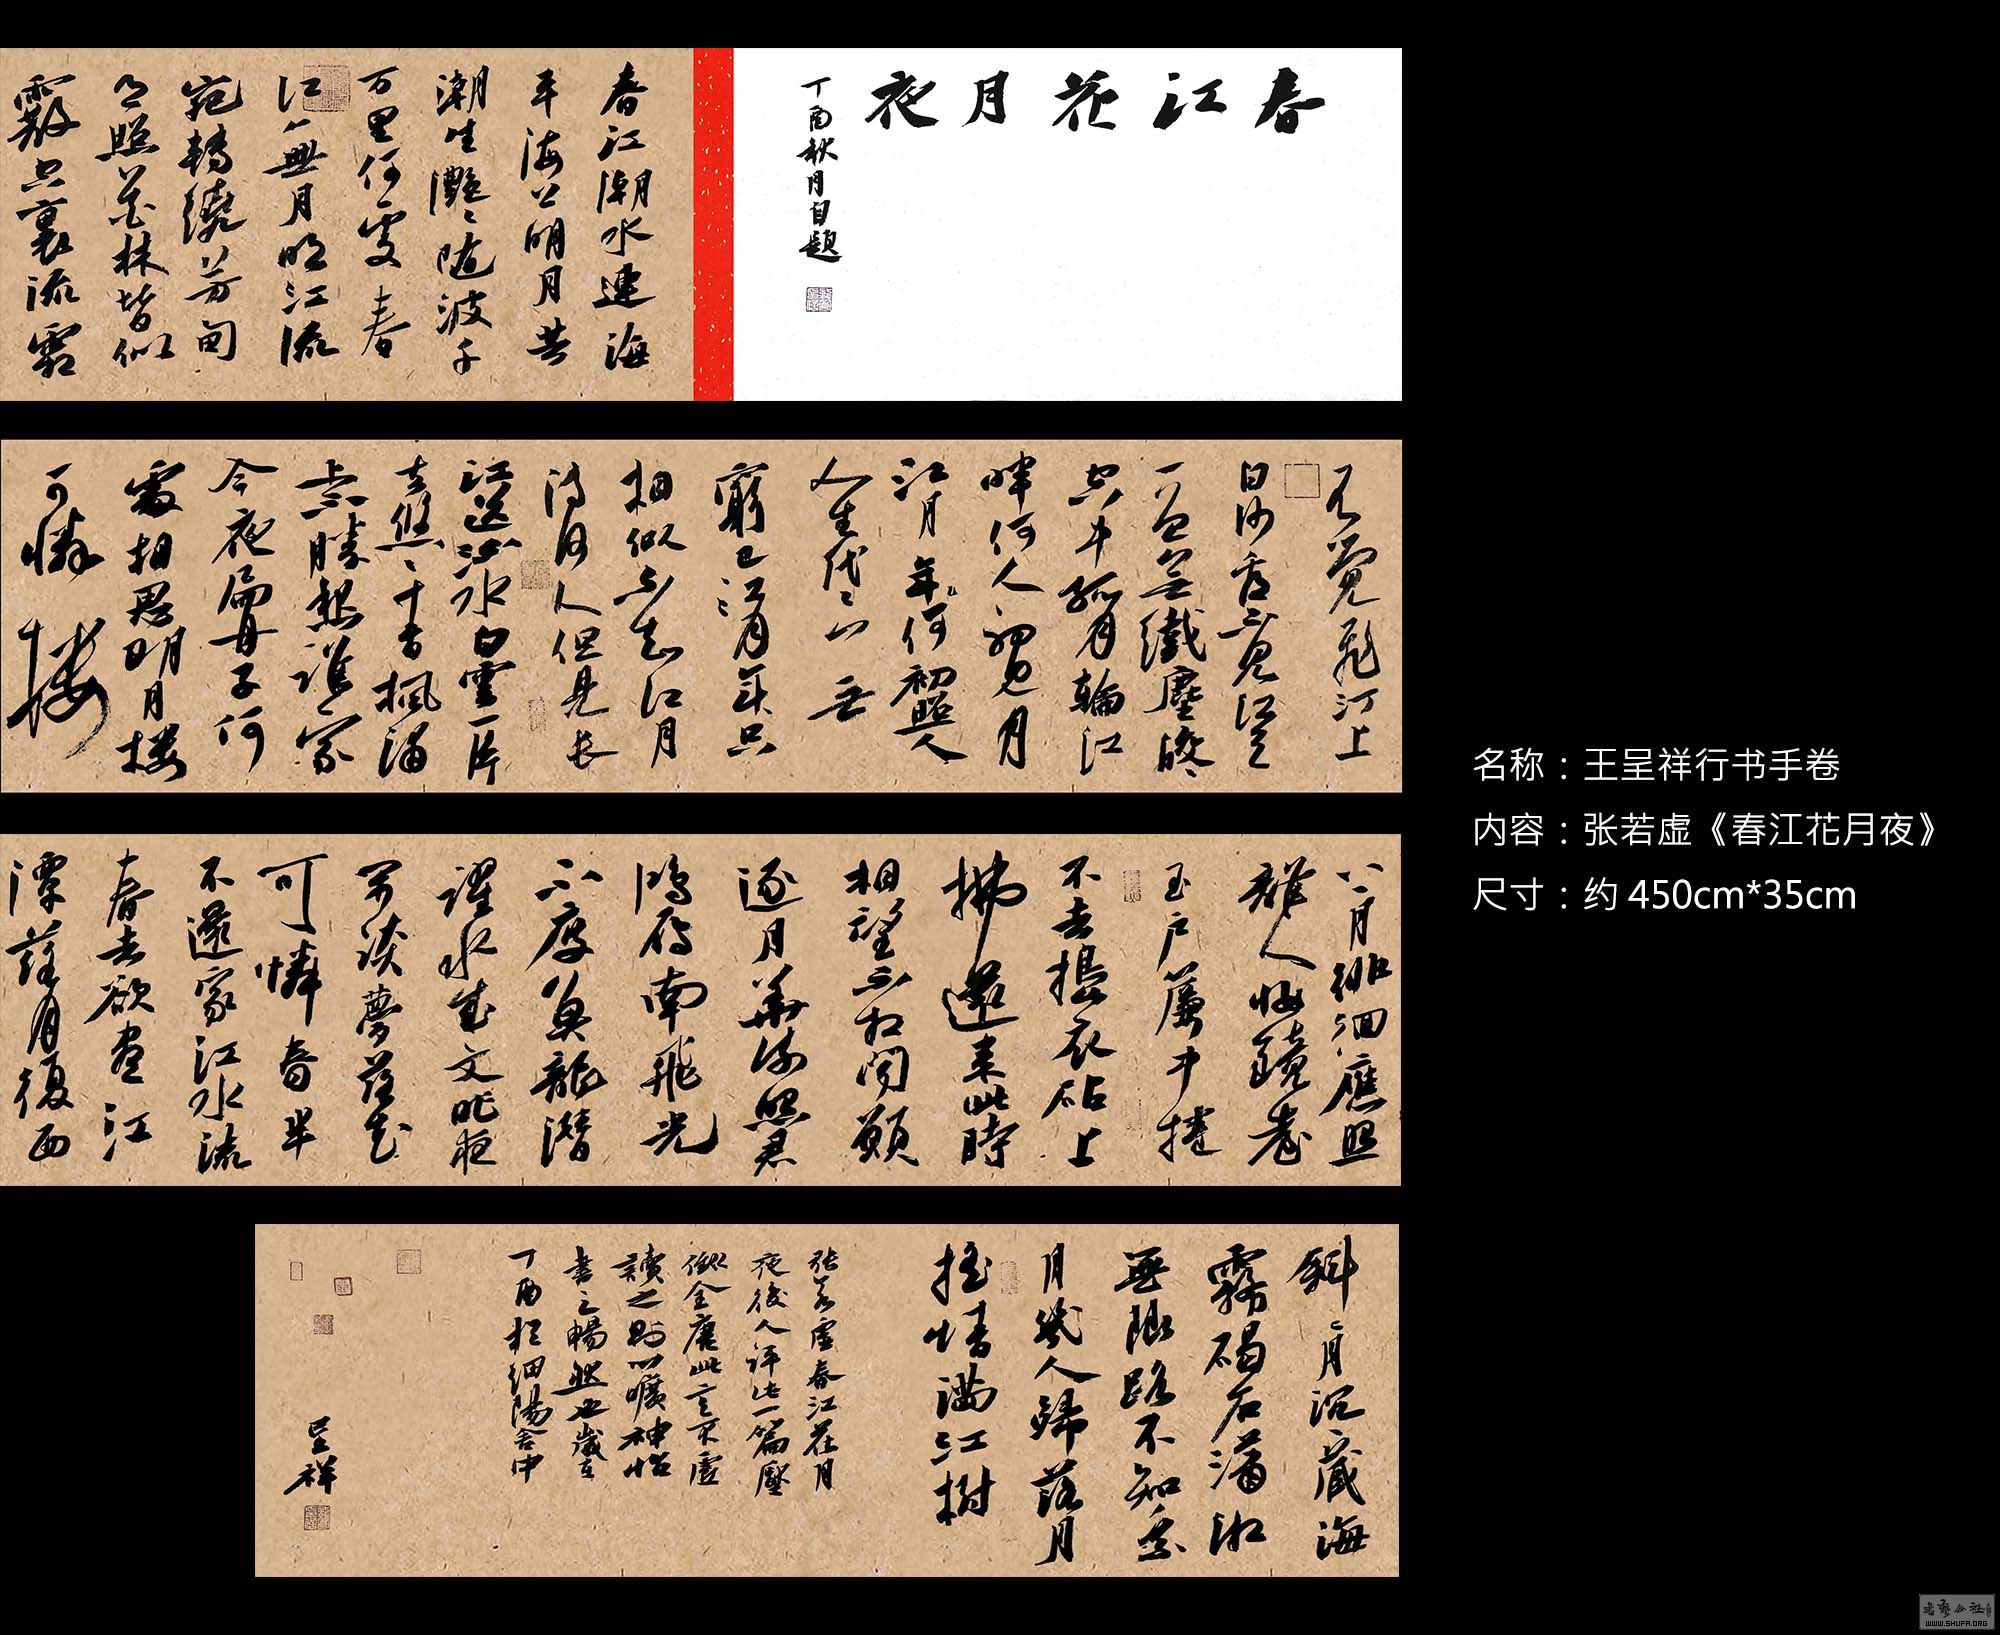 春江花月夜
丁酉秋月自題
春江潮水連海
平海上明月共
潮生灔々隨波千
万里何處春
江無月明江流
宛轉繞芳甸
月照花林皆似
霰空裏流霜
不覺飛汀上
白沙看不見江天
一色無纖塵皎々
空中孤月輪江
畔何人初見月
江月年々何初照人
人生代々無
窮已江月年只
相似不知江月
待何人但見長
江送流水白雲一片
去悠々青楓浦
上不勝愁誰家
今夜扁舟子何
處相思明月樓
可憐樓
上月徘徊應照
離人妝鏡臺
玉戶簾中捲
不去搗衣砧上
拂還來此時
相望不相聞願
逐月華流照君
鴻雁南飛光
不度魚龍潛
躍水成文昨夜
閒潭夢落花
可憐春半
不還家江水流
春去欲盡江
潭落月復西
斜々月沉々藏海
霧碣石瀟湘
無限路不知乘
月幾人歸落月
搖情滿江樹
張若虛春江花月
夜後人評此一篇壓
倒全唐此言不虛
讀之則心曠神怡
書之暢然也歲在
丁酉於細陽舍中
呈祥
名称：王呈祥行书手卷
内容：张若虚《春江花月夜》
尺寸：约 450cm*35cm
书艺公社
WWW.SHUFA.ORG